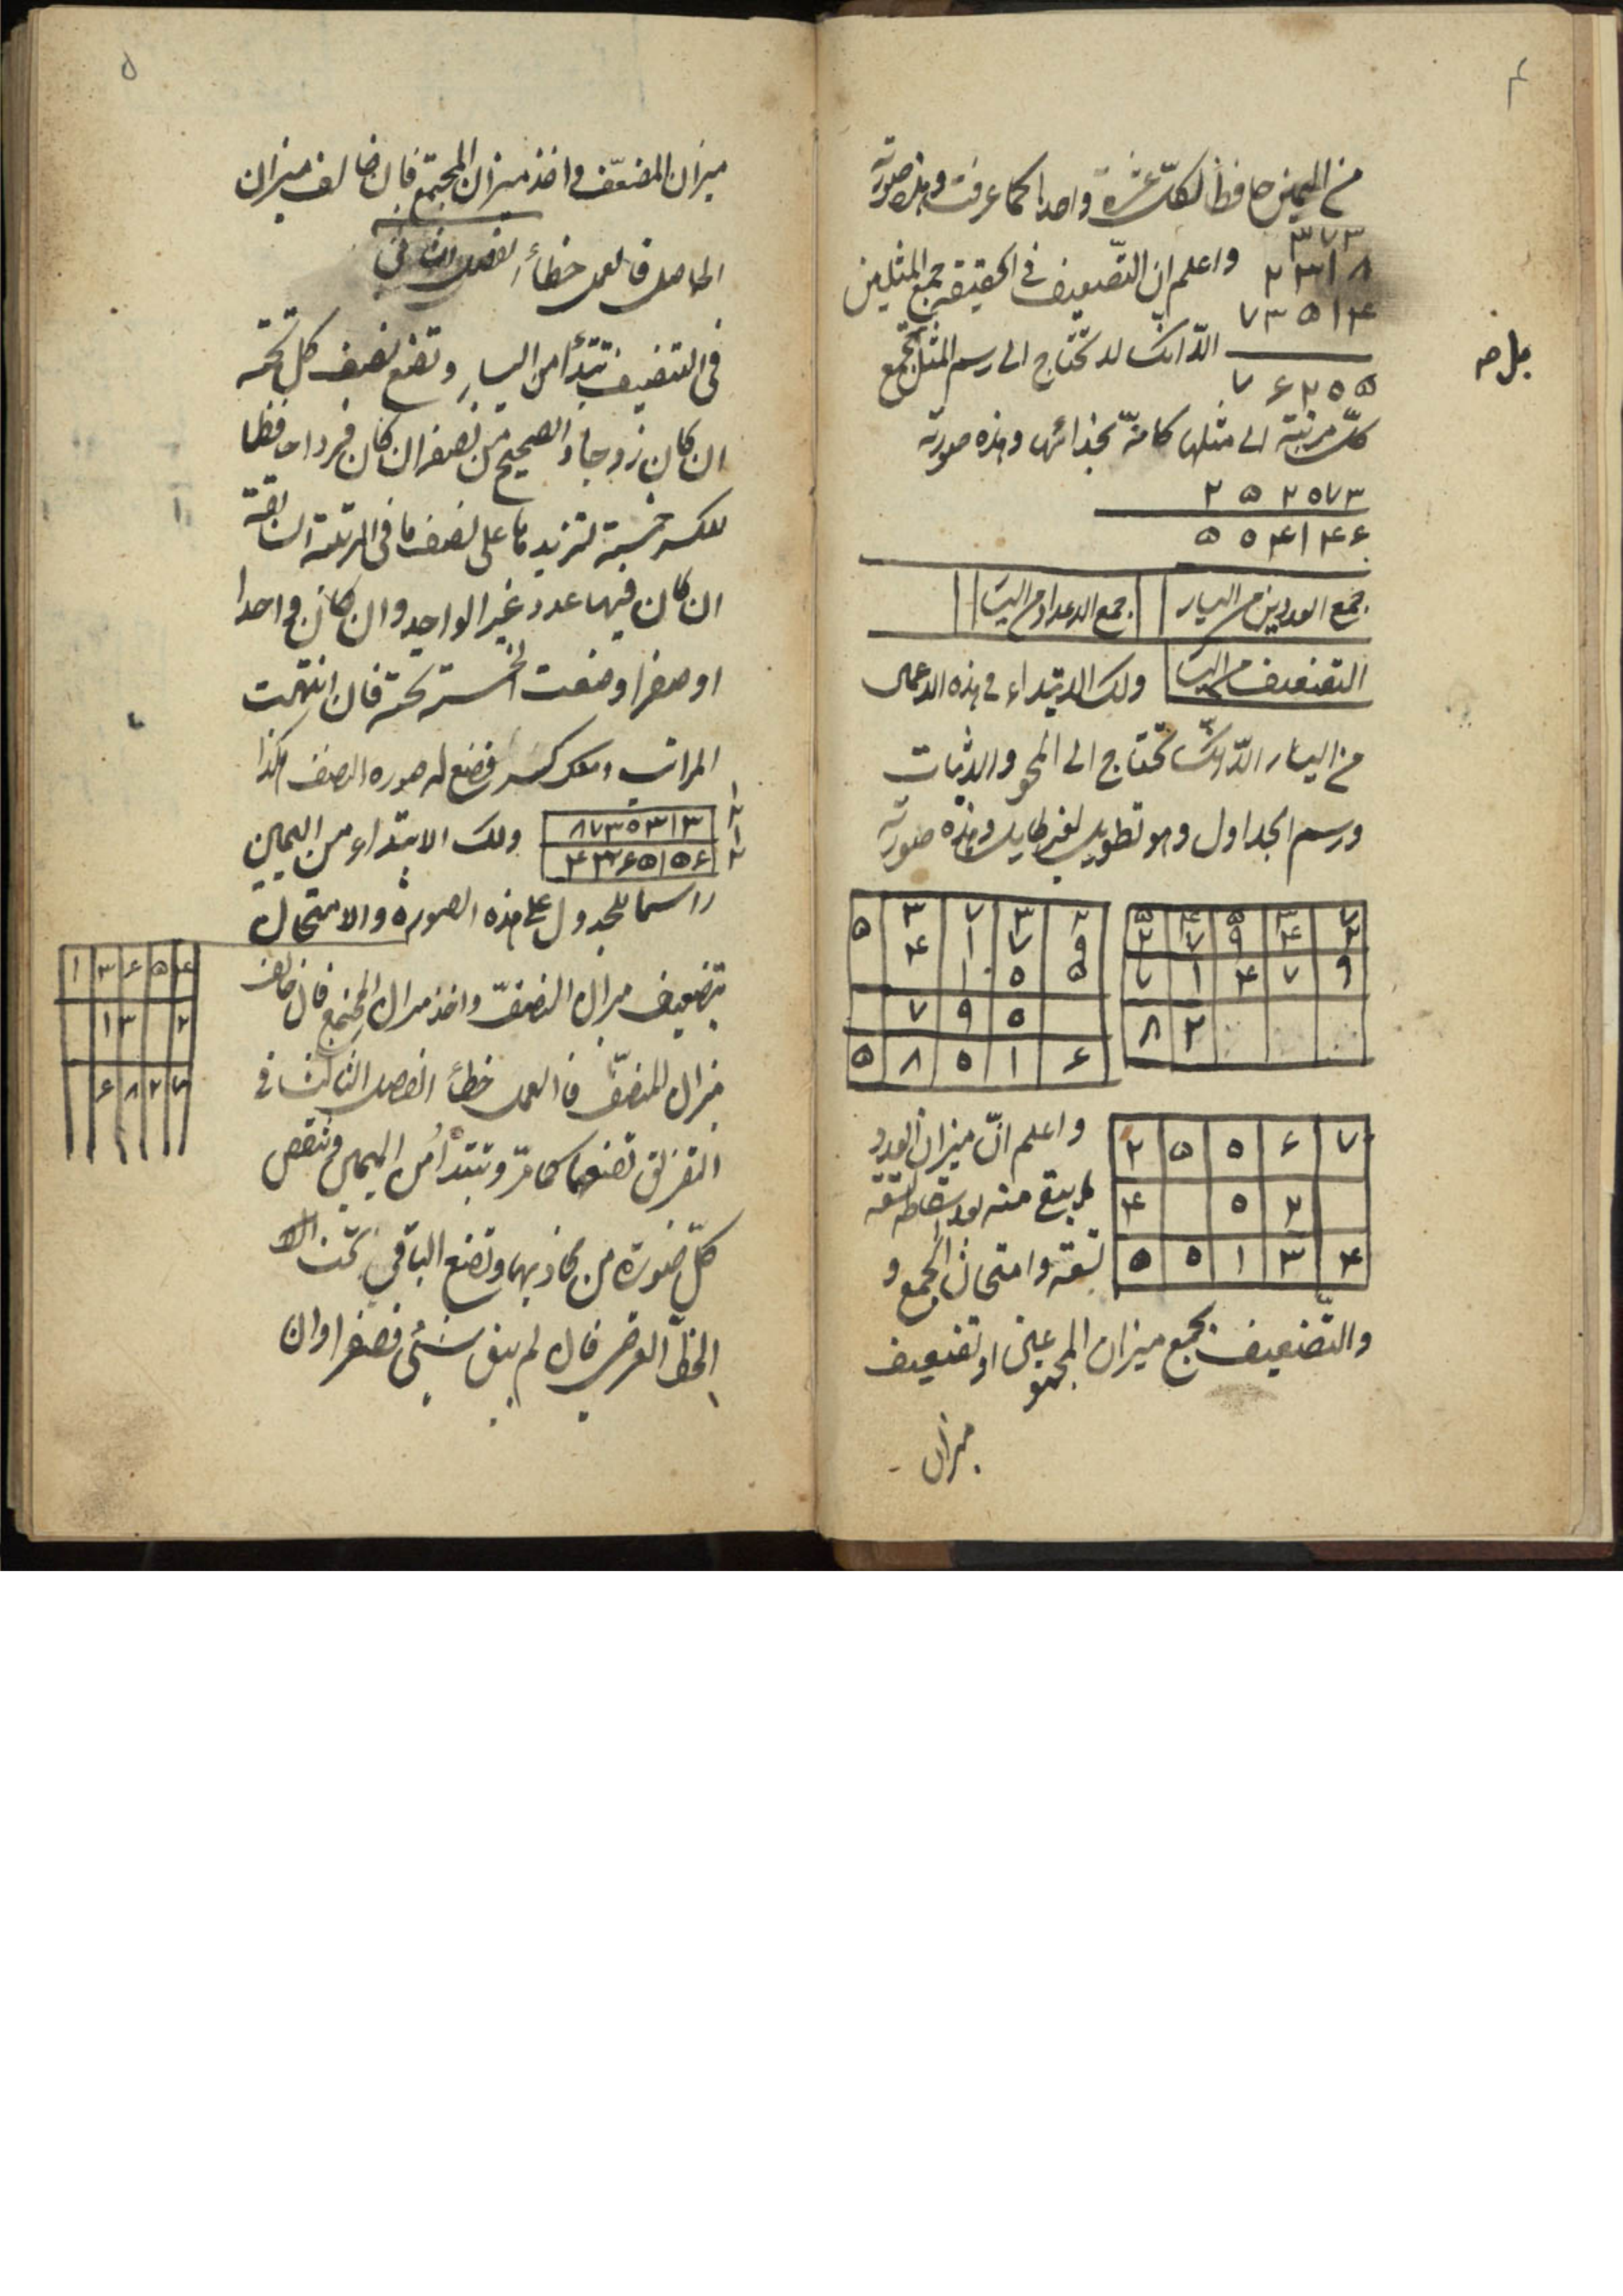 ٤
من اليمين حافظا لكل عشرة واحدا كما عرفت وهذه صورته
٣٧٣
٢٣١٨
٧٣٥١۴
٧۶٢٠۵
واعلم ان التضعيف في الحقيقة جمع المثلين
الا انك لا تحتاج الى رسم المثل بل تجمع
كل مرتبة الى مثلها كانه بحذائها وهذه صورته
٢۵٢٠٧٣
۵٠۴١۴۶
جمع العددين من اليسار جمع الاعداد من اليسار
التضعيف من اليسار ولك الابتداء في هذه الاعمال
من اليسار الا انك تحتاج الى المحو والاثبات
ورسم الجداول وهو تطويل بغير طايل وهذه صورته
۵ ۴ ۵ ٣ ٧
٢ ٧ ٩ ۴ ٢
٧ ١ ۴ ٧ ٩
٨ ٢
۵ ٣ ٧ ٣ ٢
۴ ١ ٧ ٩
١ ٥ ۵
٧ ٩ ٥
۵ ٨ ٥ ١ ۶
٢ ۵ ٥ ۶ ٧
۴ ٥ ٢
۵ ٥ ١ ٣ ۴
واعلم ان ميزان العدد
ما يبقى منه بعد اسقاطه تسعة
تسعة وامتحان الجمع و
والتضعيف بجمع ميزان المجموعين او تضعيف
ميزان
۵
ميزان المضعف واخذ ميزان المجتمع فان خالف ميزان
الحاصل فالعمل خطأ الفصل الثاني
في التنصيف تبتدأ من اليسار وتضع نصف كل تحته
ان كان زوجا والصحيح من نصفه ان كان فردا حافظا
للكسر خمسة لتزيدها على نصف ما في المرتبة السابقة
ان كان فيها عدد غير الواحد وان كان واحدا
او صفرا وضعت الخمسة تحته فان انتهت
المراتب ومعك كسر فضع له صورة النصف هكذا
٨٧٣٠٣١٣
۴٣۶۵١۵۶
١
٢
ولك الابتداء من اليمين
راسما للجدول على هذه الصورة والامتحان
١ ٣ ۶ ۵ ۴
١ ٣ ٢
۶ ٨ ٢ ٧
بتضعيف ميزان النصف واخذ ميزان المجتمع فان خالف
ميزان المنصف فالعمل خطأ الفصل الثالث في
التفريق تضعهما كما مر وتبتدأ من اليمين وتنقص
كل صورة من محاذيها وتضع الباقي تحت
الخط العرضي فان لم يبق شيء فصفرا وان